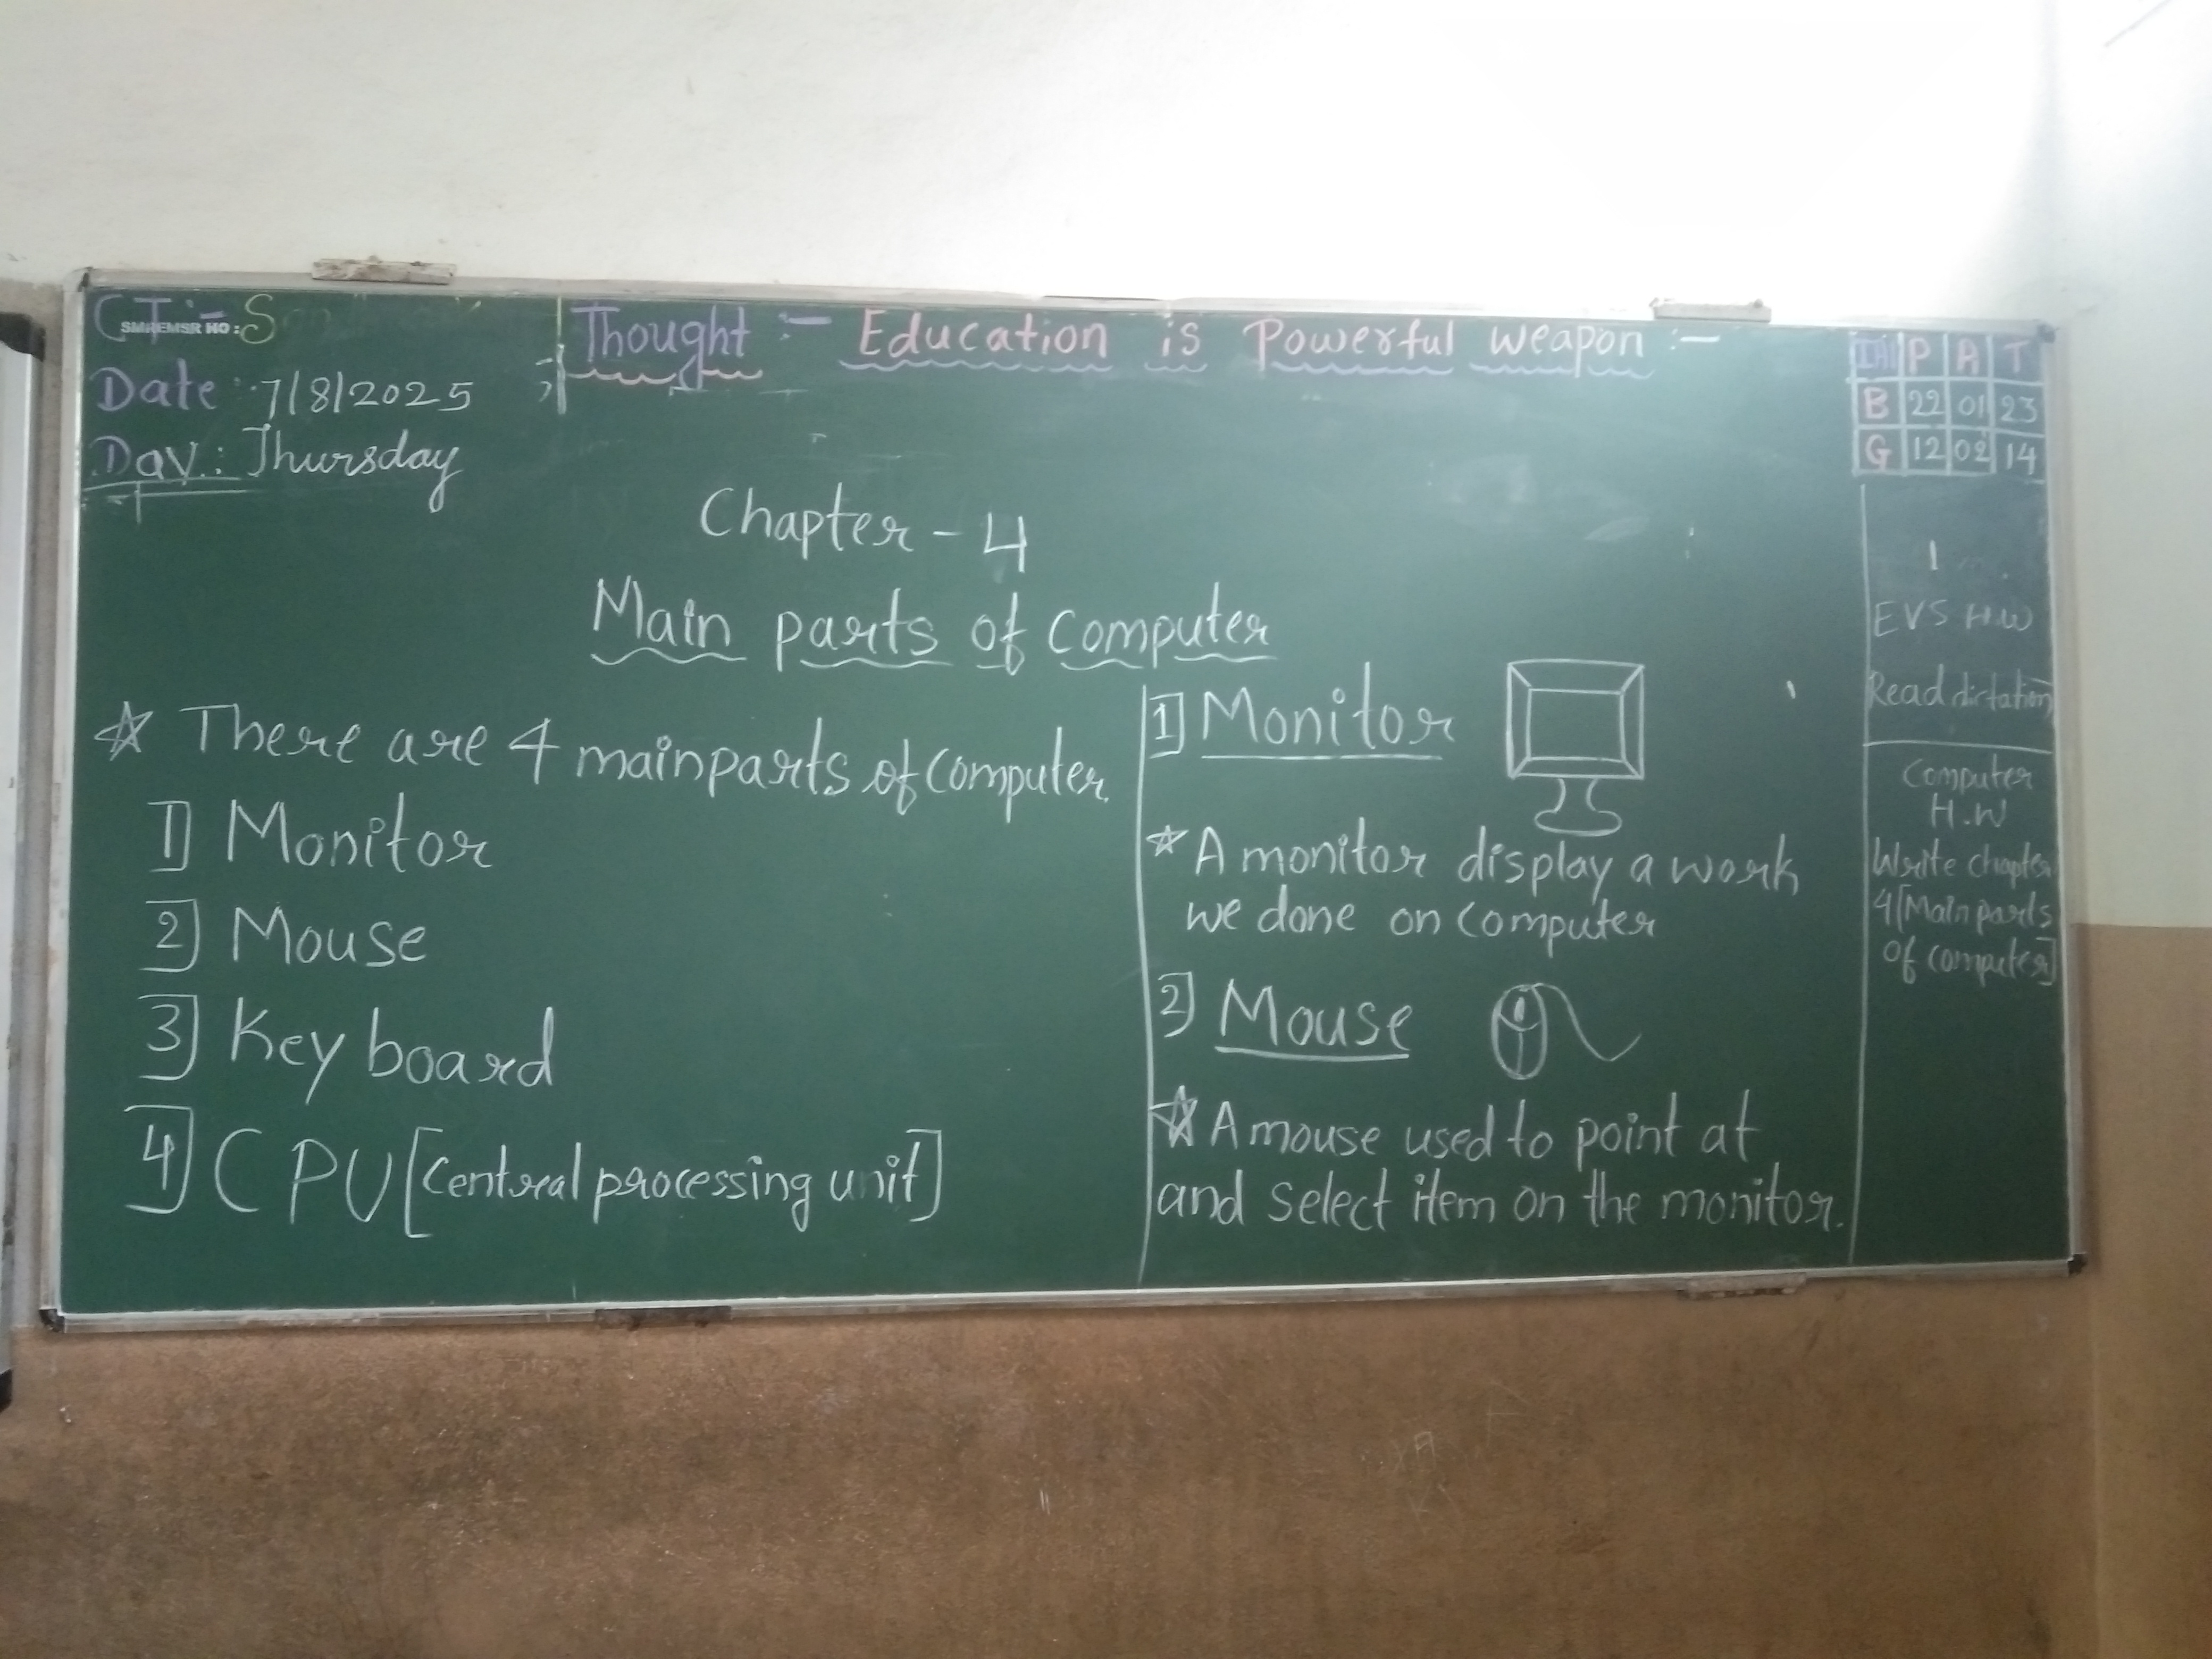 CT:- S
SMREMSR HO:
Date: 7/8/2025
Day: Thursday
Thought :- Education is Powerful weapon :-
P A T
B 22 01 23
G 12 02 14
Chapter - 4
Main parts of Computer
☆ There are 4 main parts of Computer.
1] Monitor
2] Mouse
3] Key board
4] CPU [Central processing unit]
1] Monitor
☆ A monitor display a work
we done on Computer
2] Mouse
☆ A mouse used to point at
and Select item on the monitor.
EVS H.W
Read dictation
Computer
H.W
Write chapter
4 [Main parts
of computer]